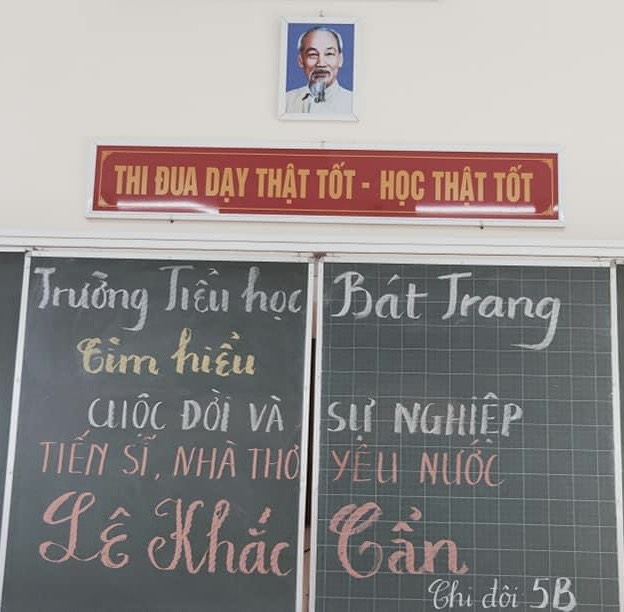 THI ĐUA DẠY THẬT TỐT - HỌC THẬT TỐT
Trường Tiểu học Bát Trang
Tìm hiểu
CUỘC ĐỜI VÀ SỰ NGHIỆP
TIẾN SĨ, NHÀ THƠ YÊU NƯỚC
Lê Khắc Cẩn
Chi đội 5B